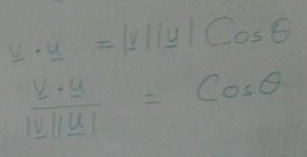 v̲ · u̲ = |v̲||u̲| Cosθ
v̲ · u̲ / |v̲||u̲| = Cosθ